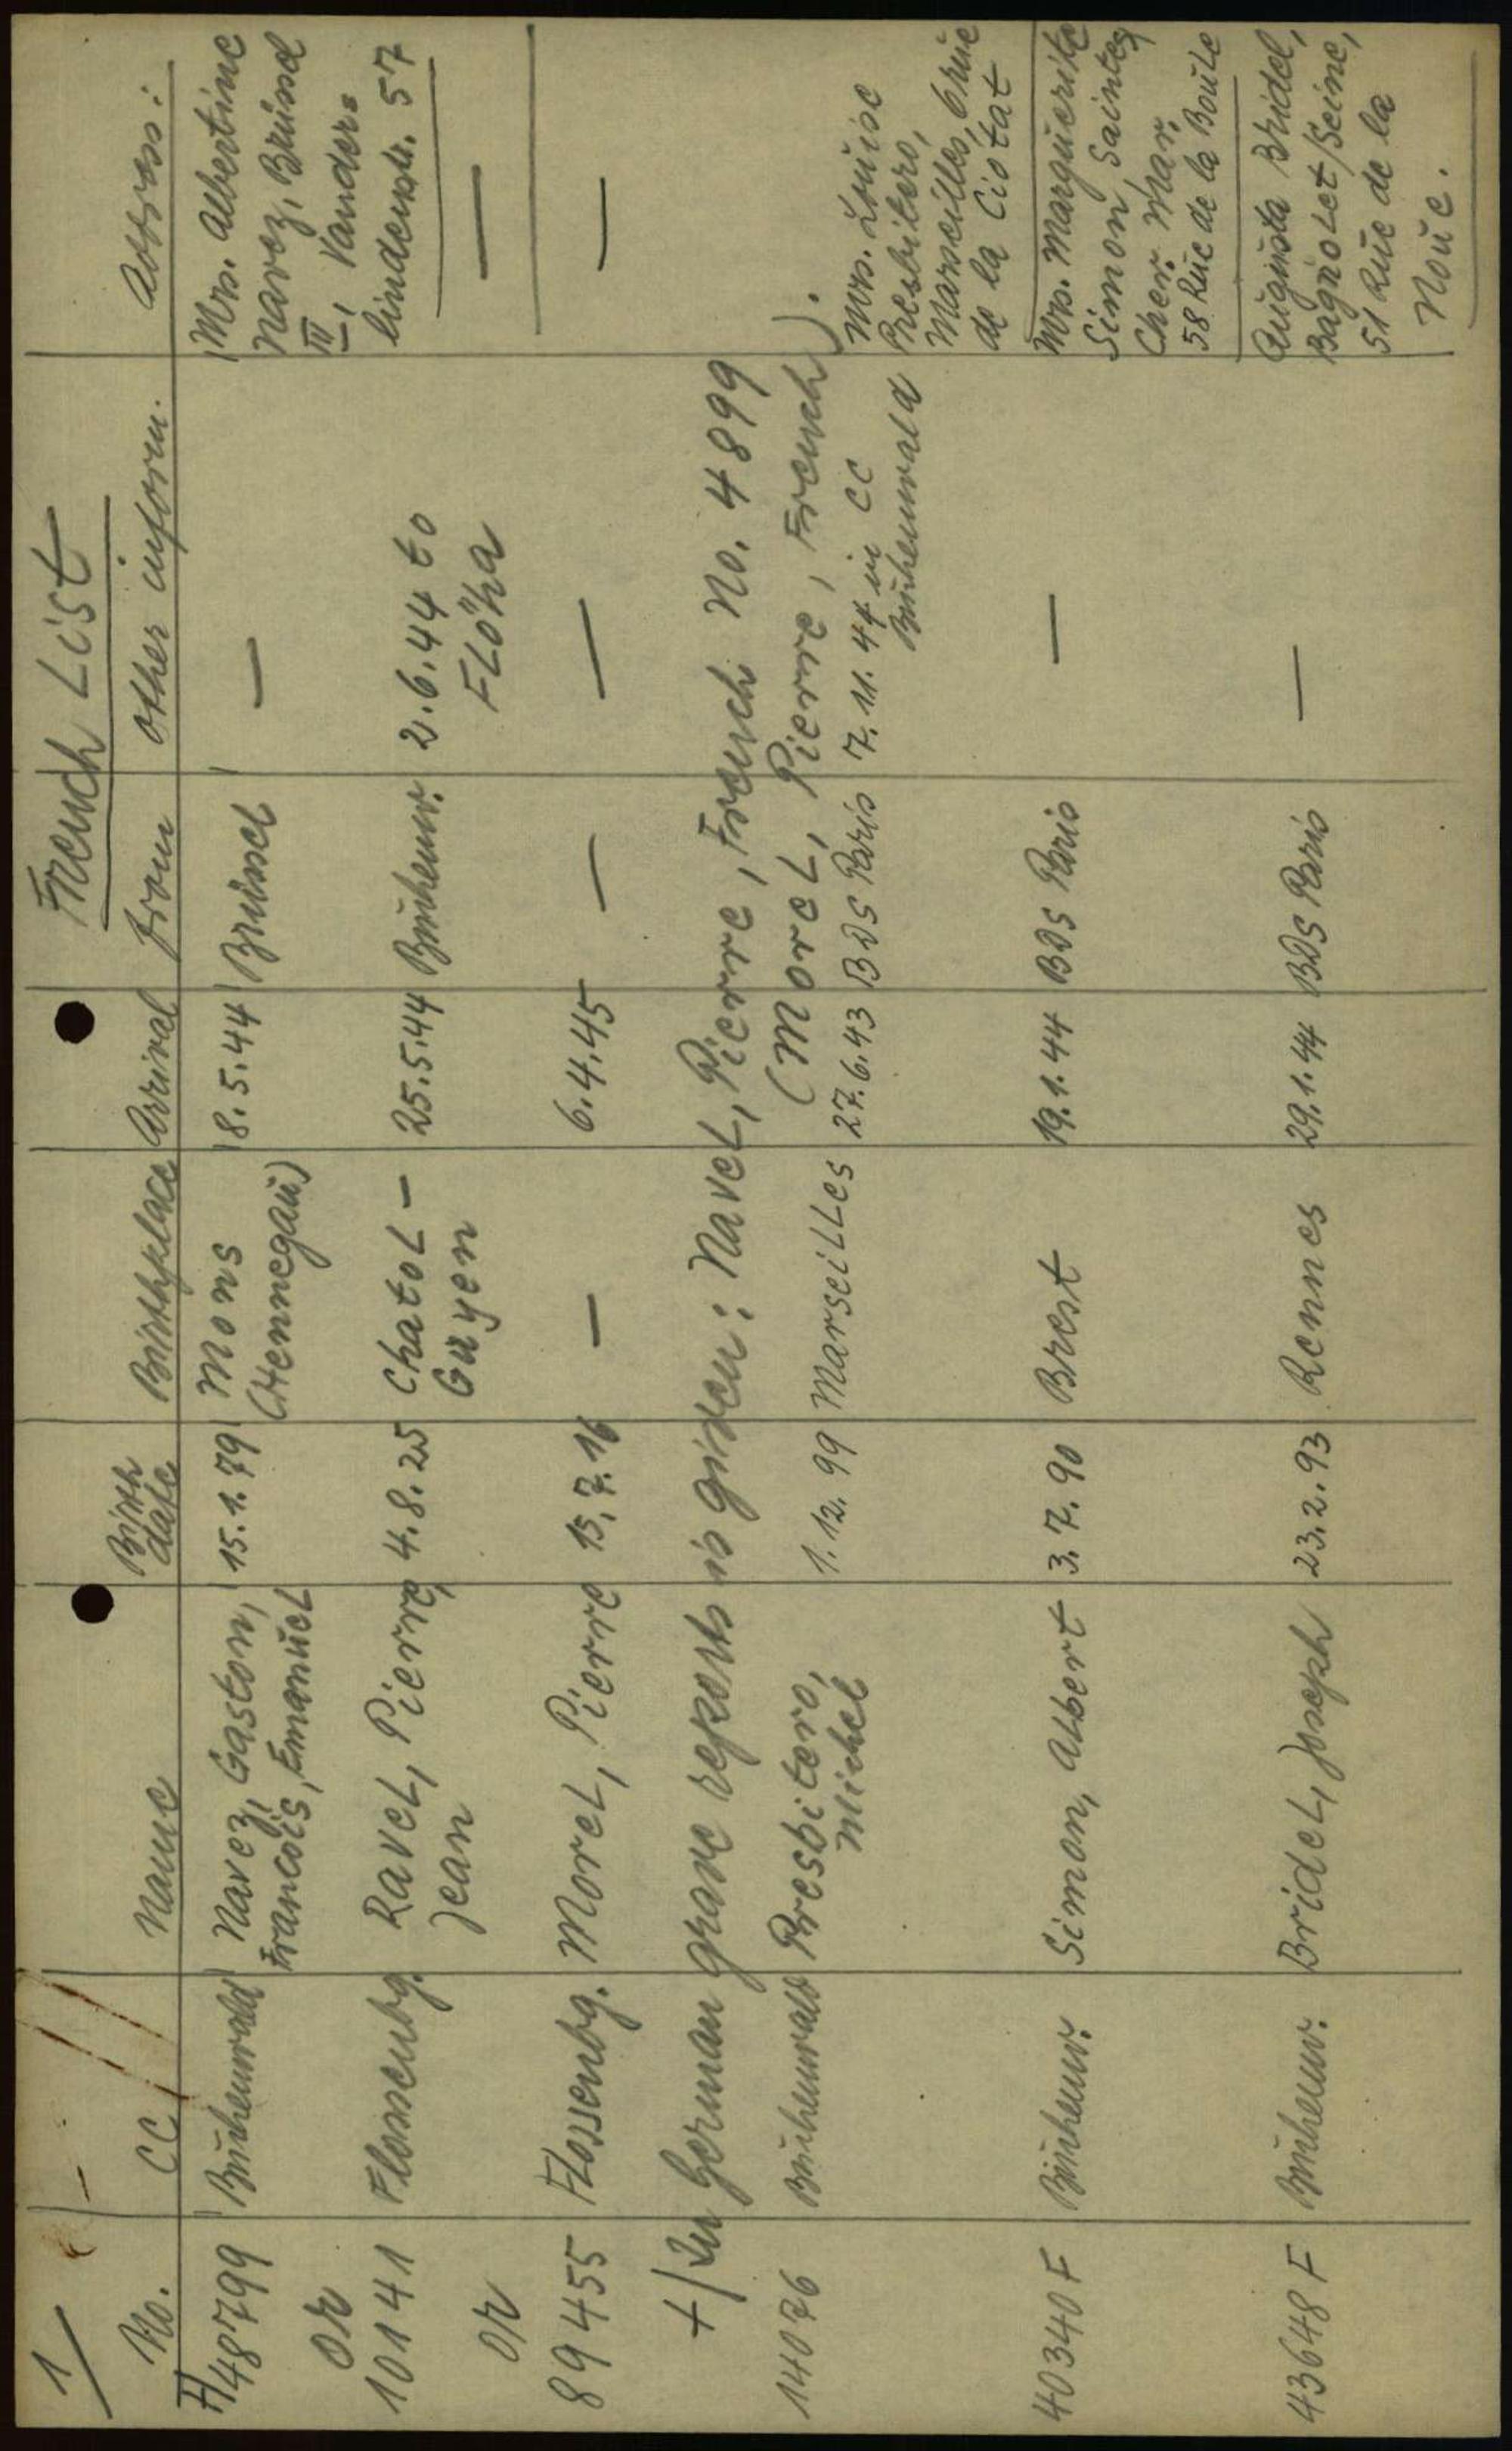 1
French List
No. CC Name Birth date Birthplace Arrival from other inform. Address:
+/ 48799 Buchenwald Navez, Gaston, 15.1.79 Mons 8.5.44 Brüssel — Mrs. Albertine
Francois, Emanuel (Hennegau) Navez, Brüssel
III, Vander=
lindenstr. 57
or
10141 Flossenbg. Ravel, Pierre, 4.8.25 Chatol- 25.5.44 Buchenw. 2.6.44 to —
Jean Guyen Flöha
or
89455 Flossenbg. Morel, Pierre 15.7.16 — 6.4.45 — — —
+/ In German grave reports is given: Navel, Pierre, French No. 4899
(Morel, Pierre, French).
14076 Buchenwald Presbitero, 1.12.99 Marseilles 27.6.43 BDS Paris 7.11.44 in CC Mrs. Louise
Michel Buchenwald Presbitero,
Marseilles, 6 rue
de la Ciotat
40340 F Buchenw. Simon, Albert 3.7.90 Brest 19.1.44 BDS Paris — Mrs. Marguerite
Simon, Saintes
Cher. Mar.
58 Rue de la Boule
43648 F Buchenw. Bridel, Joseph 23.2.93 Rennes 29.1.44 BDS Paris — Augusta Bridel,
Bagnolet/Seine,
51 Rue de la
Noue.